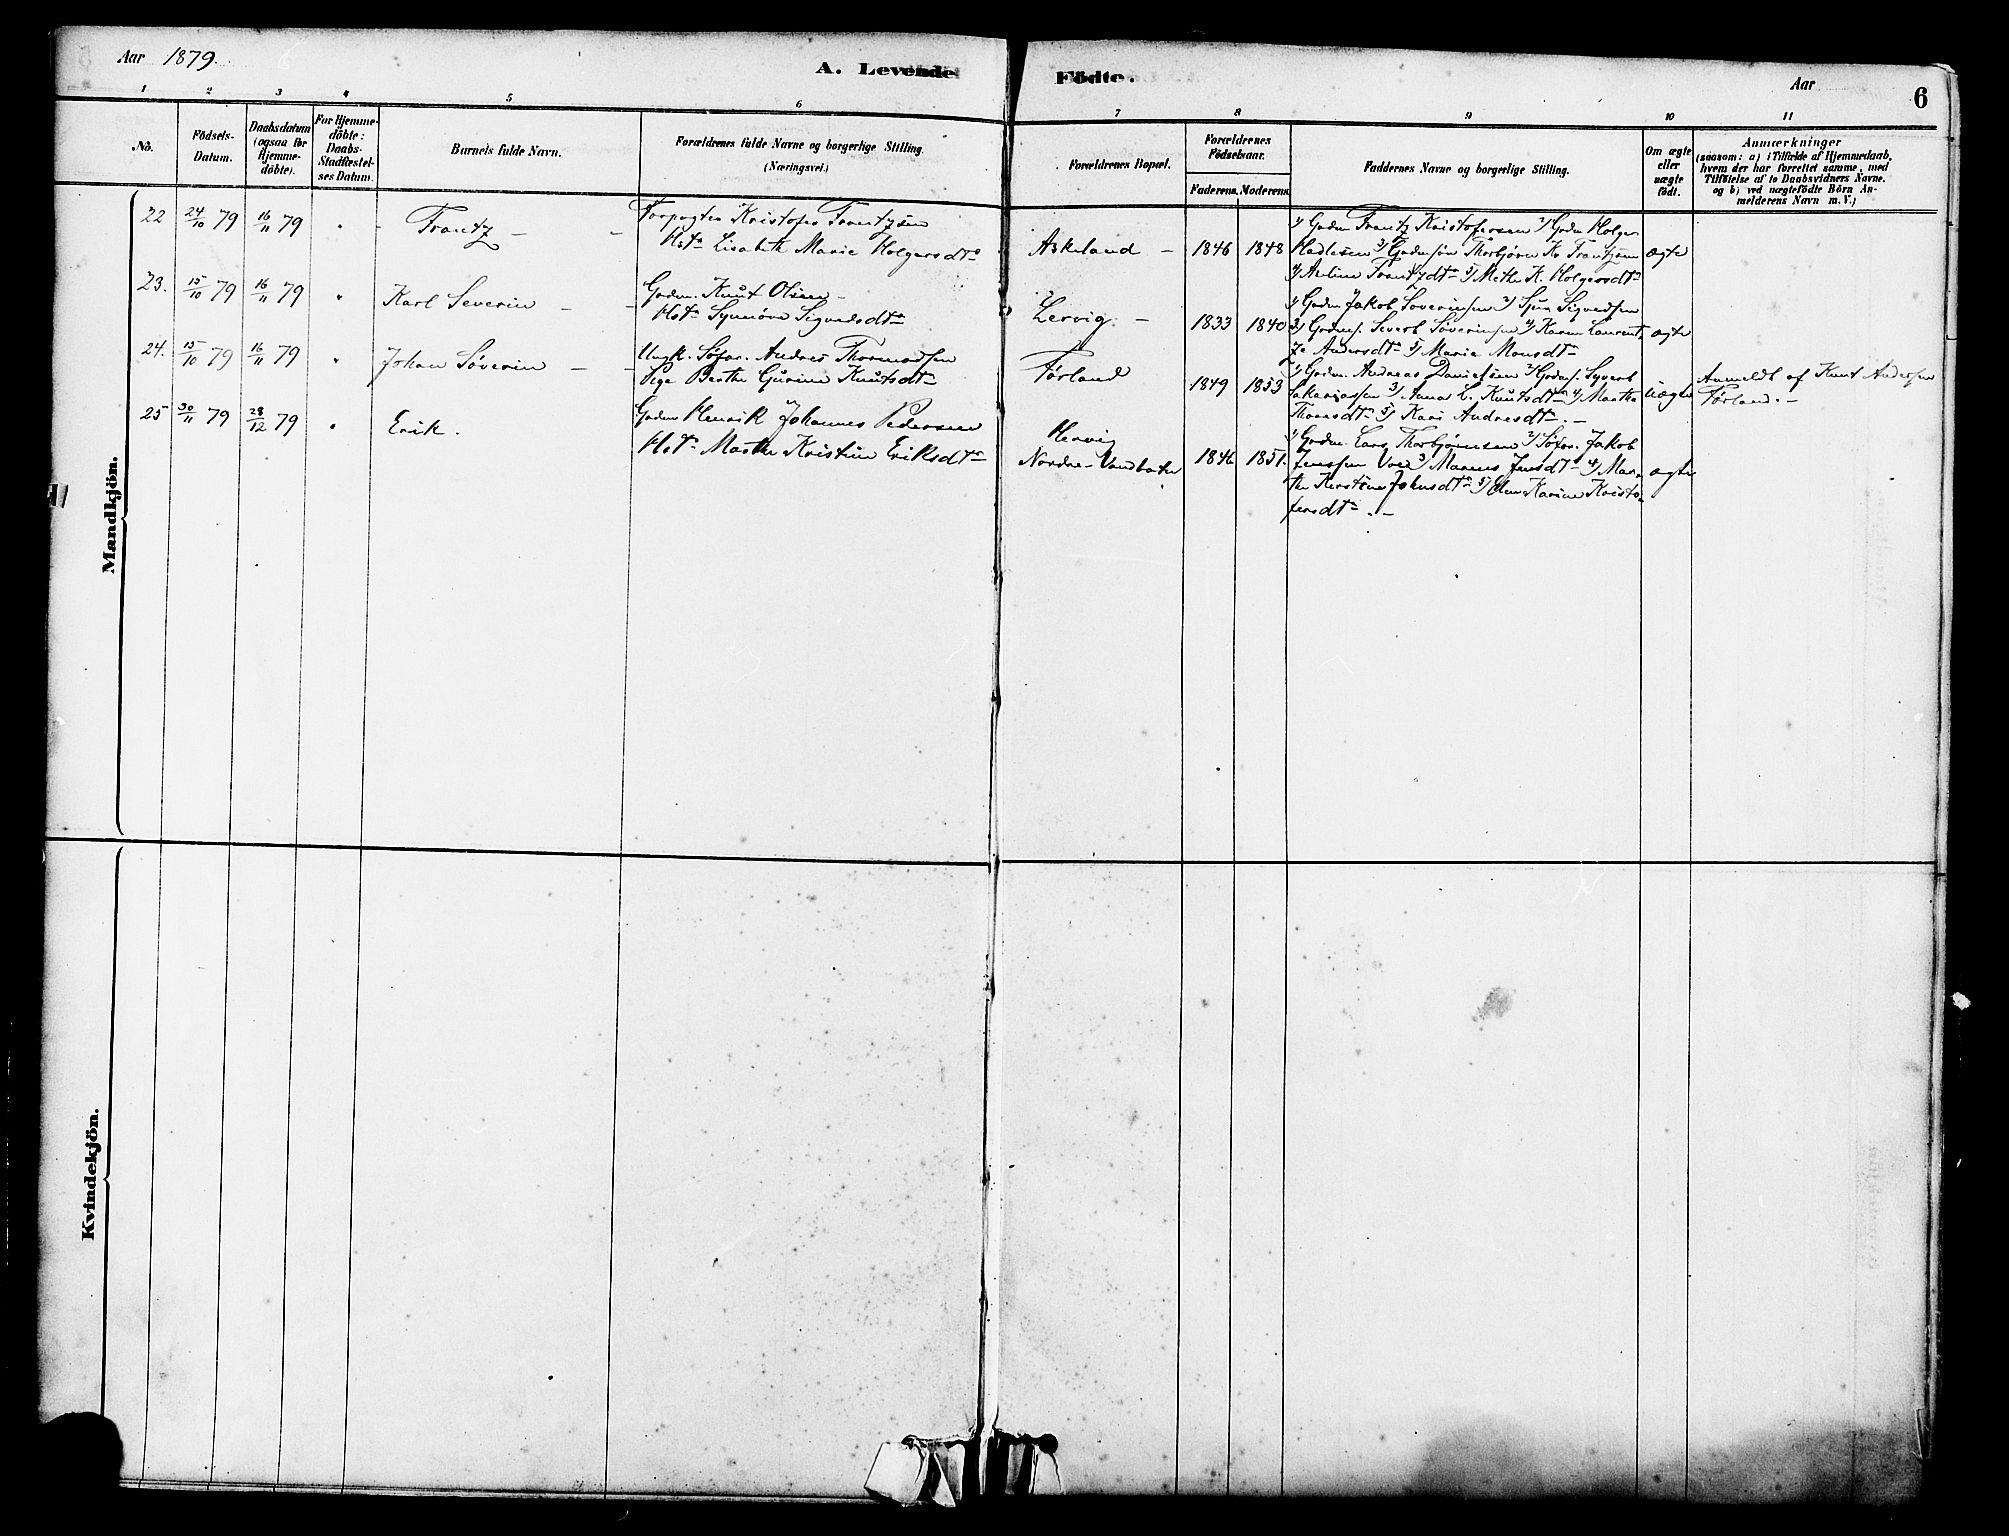 Aar 1879.
A. Levende Födte.
Aar
6
1 2 3 4 5 6 7 8 9 10 11
No.
Födsels-
Datum.
Daabsdatum
(ogsaa for
Hjemme-
döbte).
For Hjemme-
döbte:
Daabs-
Stadfæstel-
ses Datum.
Barnets fulde Navn.
Forældrenes fulde Navne og borgerlige Stilling
(Næringsvei.)
Forældrenes Bopæl.
Forældrenes
Födselsaar.
Faderens. Moderens.
Faddernes Navne og borgerlige Stilling.
Om ægte
eller
uægte
födt.
Anmærkninger
(saasom: a) i Tilfælde af Hjemmedaab,
hvem der har forrettet samme, med
Tilföielse af to Daabsvidners Navne.
og b) ved uægtefödte Börn An-
melderens Navn m. V.)
Mandkjön.
22 24/10 79 16/11 79 " - Frantz - -
Forpagter Kristofer Frantzsen
Hst. Lisabeth Marie Holgersdtr
Askeland - 1846 1848
1) Gaardm Frantz Kristofersen 2) Gaardm Holger
Hadlesen 3) Gaardmsøn Thorbjørn K. Frantzsen
4) Andine Frantzdtr 5) Methe K. Holgersdtr
ægte
23. 15/10 79 16/11 79 " Karl Severin - -
Gaardm. Knut Olsen -
Hst. Synnøve Sigvardsdtr
Lervig - 1833 1840
1) Gaardm Jakob Severinsen 2) Sigvardsen
3) Gaardms. Severt Søverinsen 4) Karen Laurent-
ze Andersdtr 5) Marie Monsdtr
ægte
24. 15/10 79 16/11 79 " Johan Søverin - -
Ungk. Søfar. Andres Thormodsen
Pige Berthe Gurine Knutsdtr
Førland 1849 1853
1) Gaardm. Andreas Danielsen 2) Gaardms. Syvert
Sakariassen 3) Anna L. Knutsdtr 4) Marthe
Thoresdtr 5) Kari Andresdtr. -
uægte
Anmeldt af Knut Andersen
Førland. -
25 30/11 79 28/12 79 " Erik.
Gaardm Henrik Johannes Pedersen
Hst. Marthe Kristine Eriksdtr
Hervig
Nordre-Vandbatn 1846 1851.
1) Gaardm. Lars Thorbjørnsen 2) Søfar. Jakob
Jenssen 3) Maren Jensdtr 4) Mar-
the Kirstine Johnsdtr 5) Karine Kristo-
fersdtr. -
ægte
Kvindekjön.